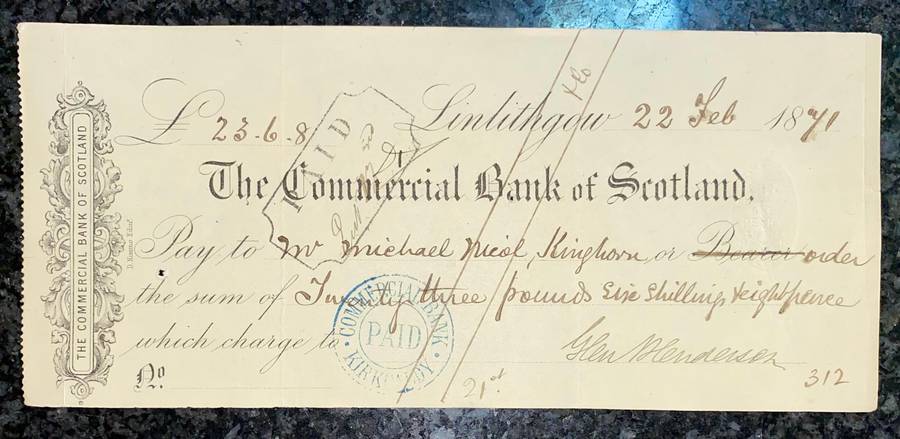 THE COMMERCIAL BANK OF SCOTLAND
& Co
£ 23.6.8 Linlithgow 22 Feb 1871
PAID
The Commercial Bank of Scotland.
Pay to Mr Michael Nicol, Kinghorn, or Bearer order
the sum of Twenty three pounds Six Shillings & eight pence
which charge to
COMMERCIAL BANK
PAID
KIRKCALDY
Glen & Henderson
No.
21st
312